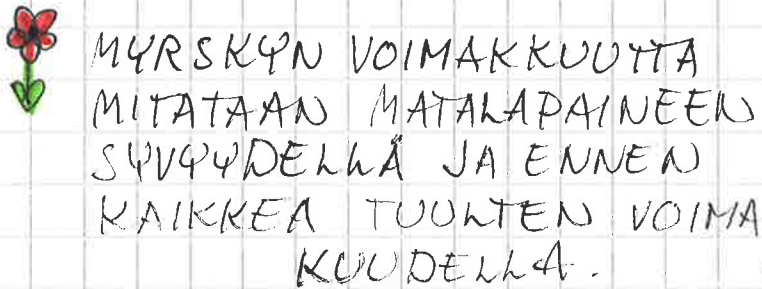 MYRSKYN VOIMAKKUUTTA
MITATAAN MATALAPAINEEN
SYVYYDELLÄ JA ENNEN
KAIKKEA TUULTEN VOIMA
KUUDELLA.